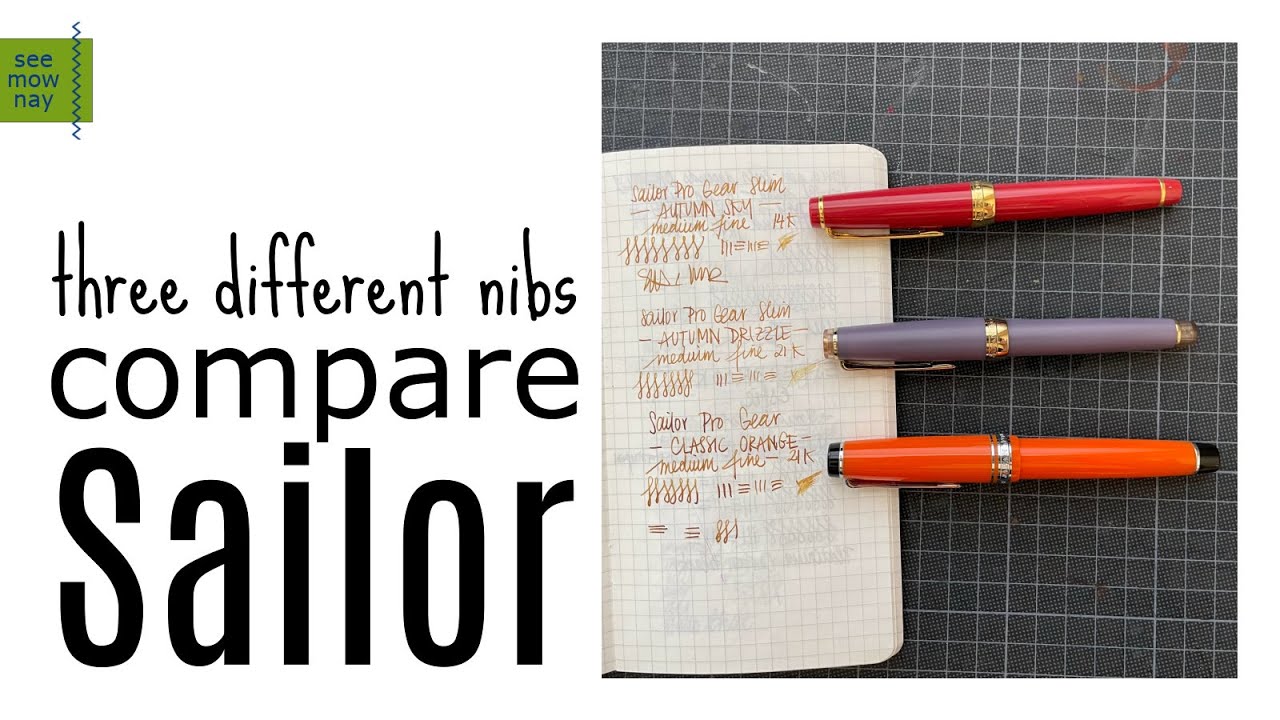 see
mow
nay
three different nibs
compare
Sailor
Sailor Pro Gear Slim
— AUTUMN SKY —
medium fine 14K
Sailor Pro Gear Slim
— AUTUMN DRIZZLE —
medium fine 21K
Sailor Pro Gear
— CLASSIC ORANGE —
medium fine — 21K